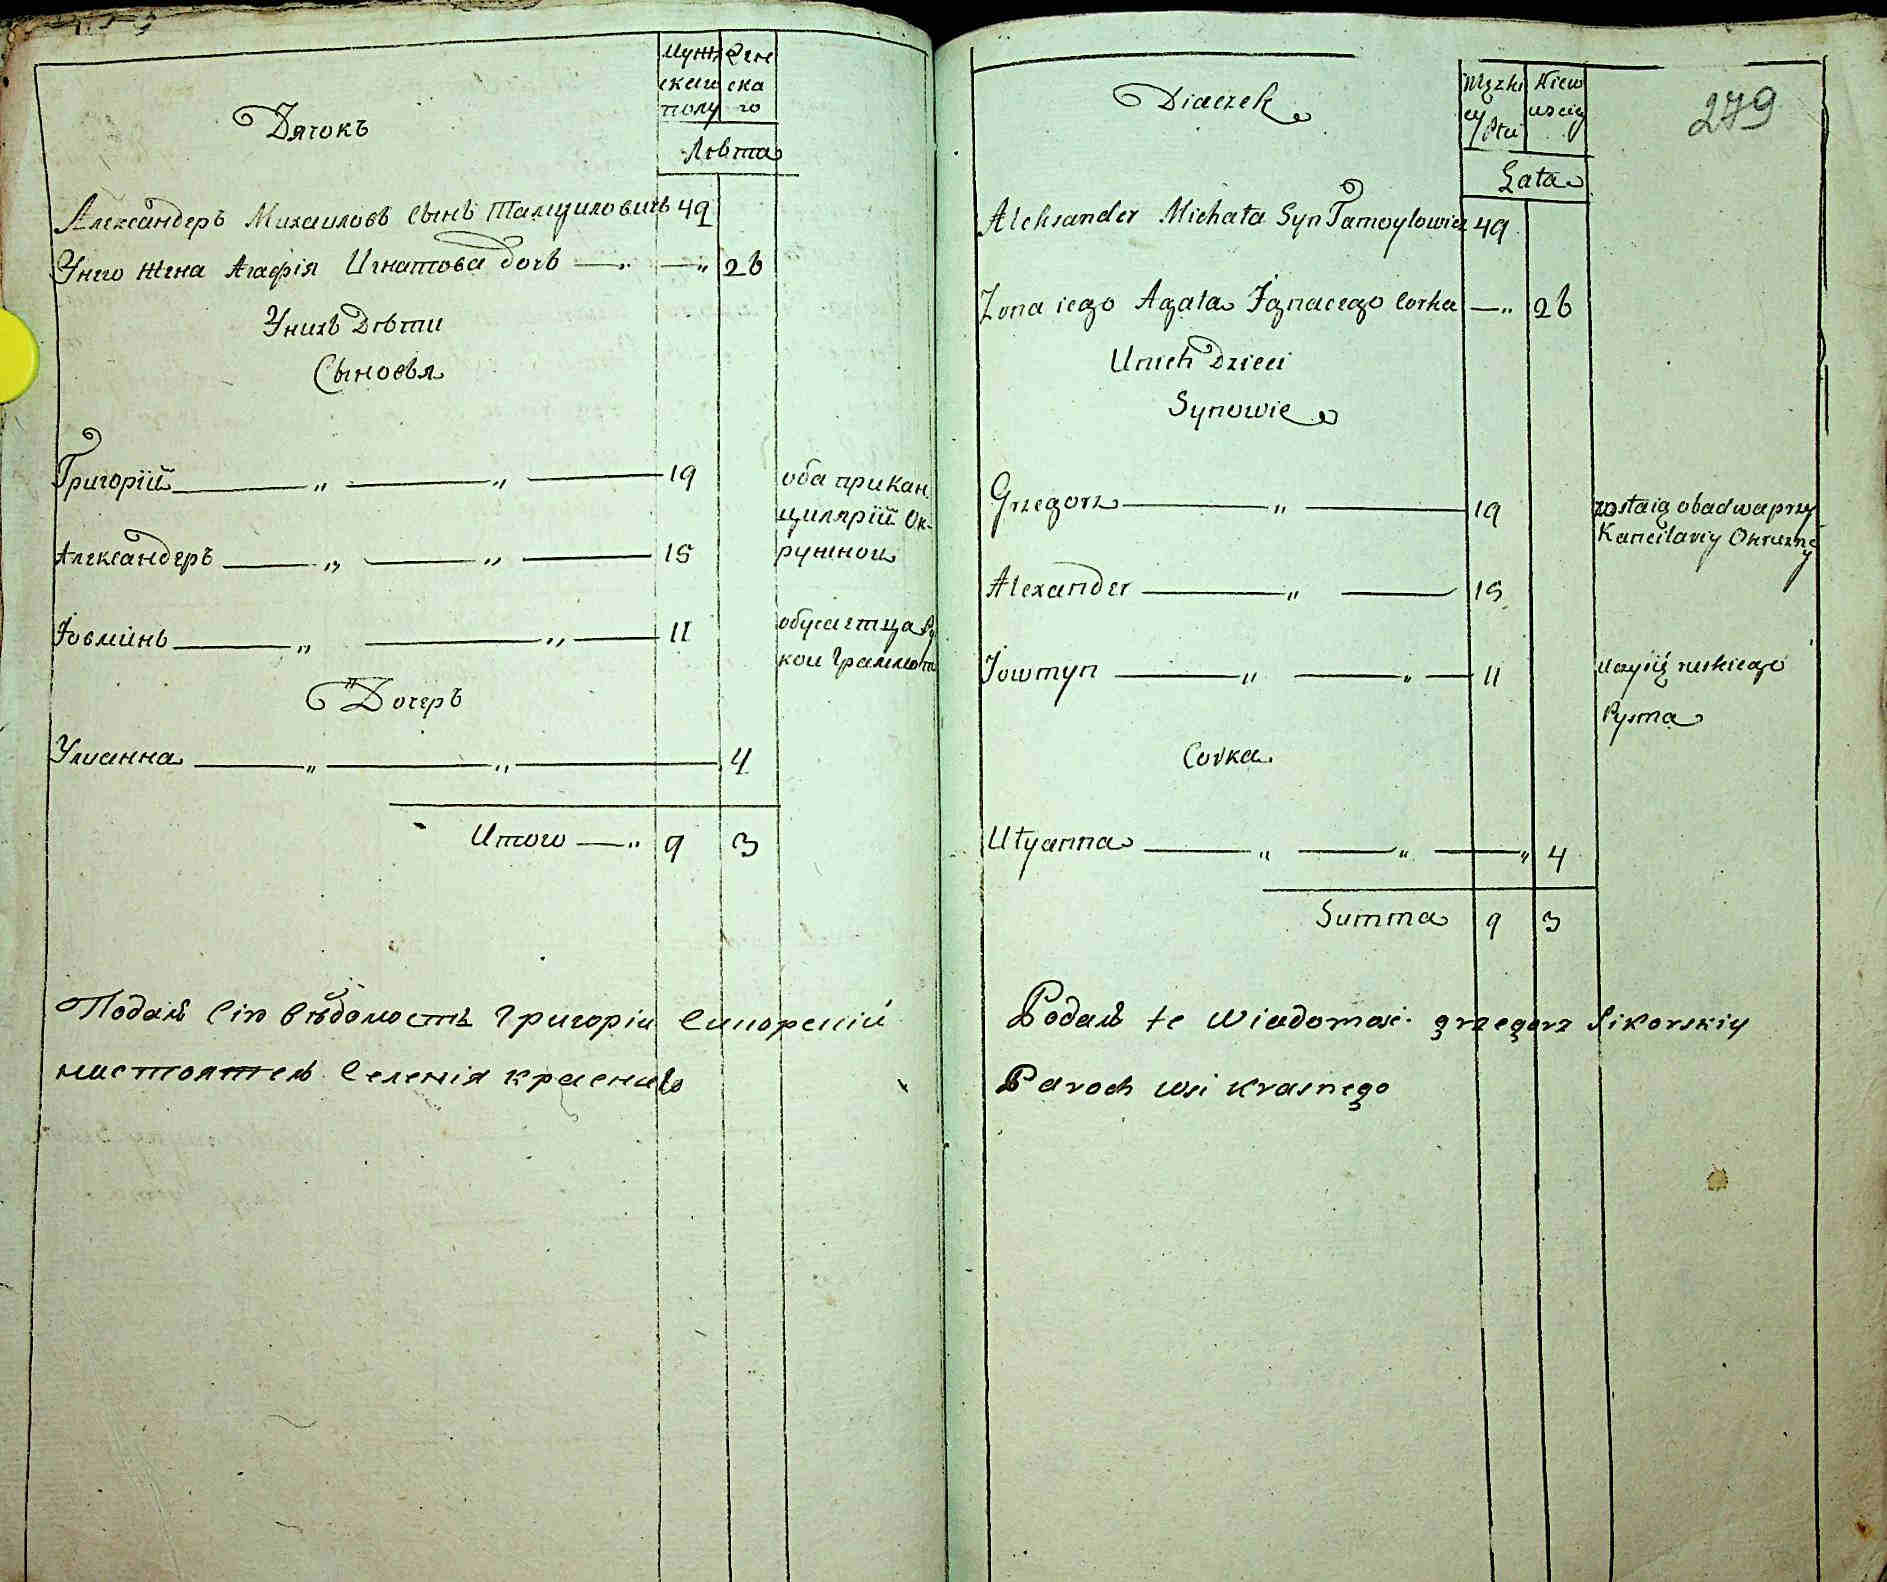 Мужескаго полу
Женскаго
Дячокъ
Лѣта
Александеръ Михаиловъ сынъ 49
Унего жена Агафія Игнатова дочь — 26
Унихъ Дѣти
Сыновья
Григорій — 19
оба при кан
целярій Ок-
ружной
Александеръ — 15
Іовминъ — 11
Дочеръ
Улианна — 4
Итого — 9 3
Подалъ сію вѣдомость Григорій Сикорскій
настоятель селенія красного
279
Diaczek
Lata
Aleksander Michała Syn 49
Zona iego Agata Ignacego Corka — 26
Unich Dzieci
Synowie
Grzegorz — 19
zostaią obadwa przy
Kancilariy Okrużney
Alexander — 15
Jowmyn — 11
ruskiego
Pysma
Corka
Ulyanna — 4
Summa 9 3
Podał te wiadomość grzegorz Sikorskiy
Paroch wsi Krasnego